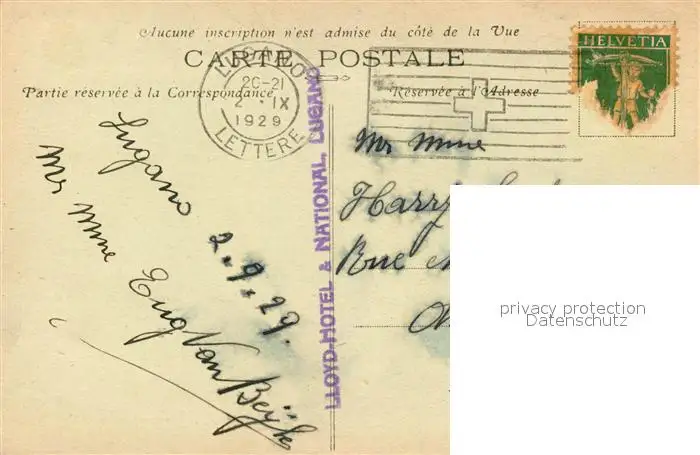 Aucune inscription n'est admise du côté de la Vue
CARTE POSTALE
Partie réservée à la Correspondance
Réservée à l'Adresse
HELVETIA
LUGANO
20-21
2. IX
1929
LETTERE
LLOYD-HOTEL & NATIONAL, LUGANO
Lugano 2.9.29.
Mr Mme Eug Van Beÿk
Mr Mme
Harry
Rue
privacy protection
Datenschutz